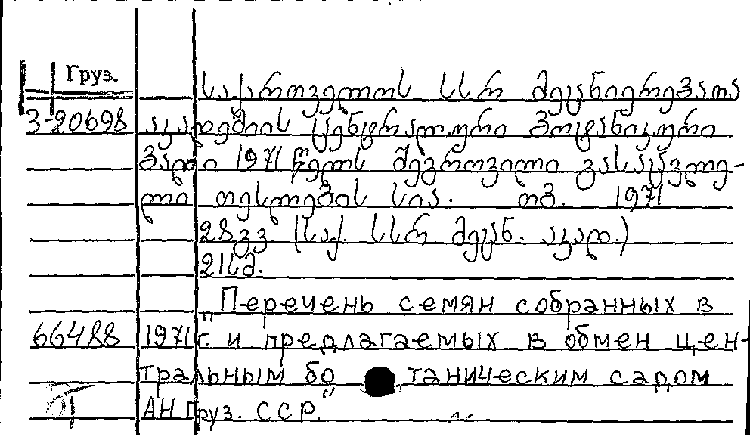 Груз.
საქართველოს სსრ მეცნიერებათა
3-20698 აკადემიის ცენტრალური ბოტანიკური
ბაღი 1971 წელს შეგროვილი გასაცვლე-
ლი თესლების სია. თბ. 1971
28 გვ. (საქ. სსრ მეცნ. აკად.)
21 სმ.
"Перечень семян собранных в
66488 1971 г и предлагаемых в обмен цен-
тральным бо таническим садом
АН Груз. ССР."